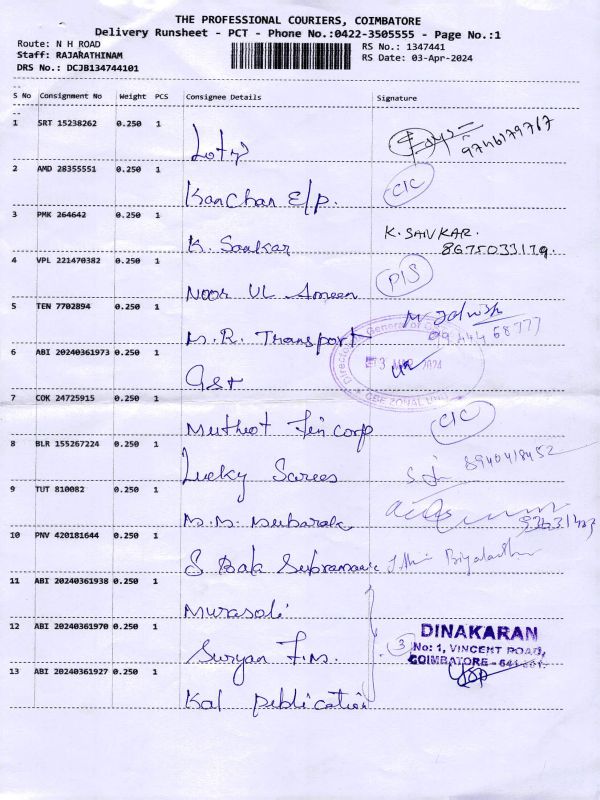 THE PROFESSIONAL COURIERS, COIMBATORE
Delivery Runsheet - PCT - Phone No.:0422-3505555 - Page No.:1
Route: N H ROAD
RS No.: 1347441
Staff: RAJARATHINAM
RS Date: 03-Apr-2024
DRS No.: DCJB134744101
S No Consignment No Weight PCS Consignee Details Signature
1 SRT 15238262 0.250 1 Loty 9746179767
2 AMD 28355551 0.250 1 Kanchan E/p. CIC
3 PMK 264642 0.250 1 K. Sankar K. SANKAR.
8675033179.
4 VPL 221470382 0.250 1 Noor UL Ameen PIS
5 TEN 7702894 0.250 1 M.R. Transport
6 ABI 20240361973 0.250 1 Gst
7 COK 24725915 0.250 1 Muthoot Fincorp CIC
8 BLR 155267224 0.250 1 Lucky Sarees 8940418452
9 TUT 810082 0.250 1 M.M. Mubarak
10 PNV 420181644 0.250 1 S Bala
11 ABI 20240361938 0.250 1 Murasoli
12 ABI 20240361970 0.250 1 Suryan F.M. 3 DINAKARAN
No: 1, VINCENT ROAD,
COIMBATORE - 641 001.
13 ABI 20240361927 0.250 1 Kal Publication